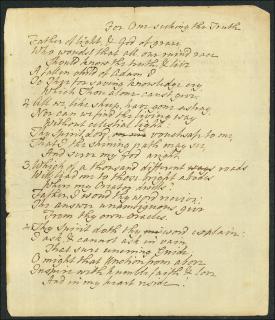 For One seeking the Truth
Father of light, & God of grace
Who wouldst that all our ruin'd race
Should know the truth, & live
A fallen child of Adam I
To Thee for saving knowledge cry
Which Thou alone canst give
2. All we, like sheep, have gone astray,
Nor can we find the living way
Without celestial light:
Thy Spirit, Lord, vouchsafe to me,
That I the shining path may see,
And serve my God aright
3. Which of a thousand different roads
Will lead me to those bright abodes
Where my Creator dwells?
Father, I would thy word receive:
The answer unambiguous, give
From thy own oracles.
4. Thy Spirit doth thy word explain:
I ask, & cannot ask in vain
That sure unerring Guide;
O might that Unction from above
Inspire with humble faith & love
And in my heart reside.